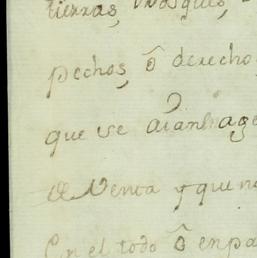 tierras, Vosques,
pechos, ô derecho
que se
de Venta y que no
En el todo ô en pa